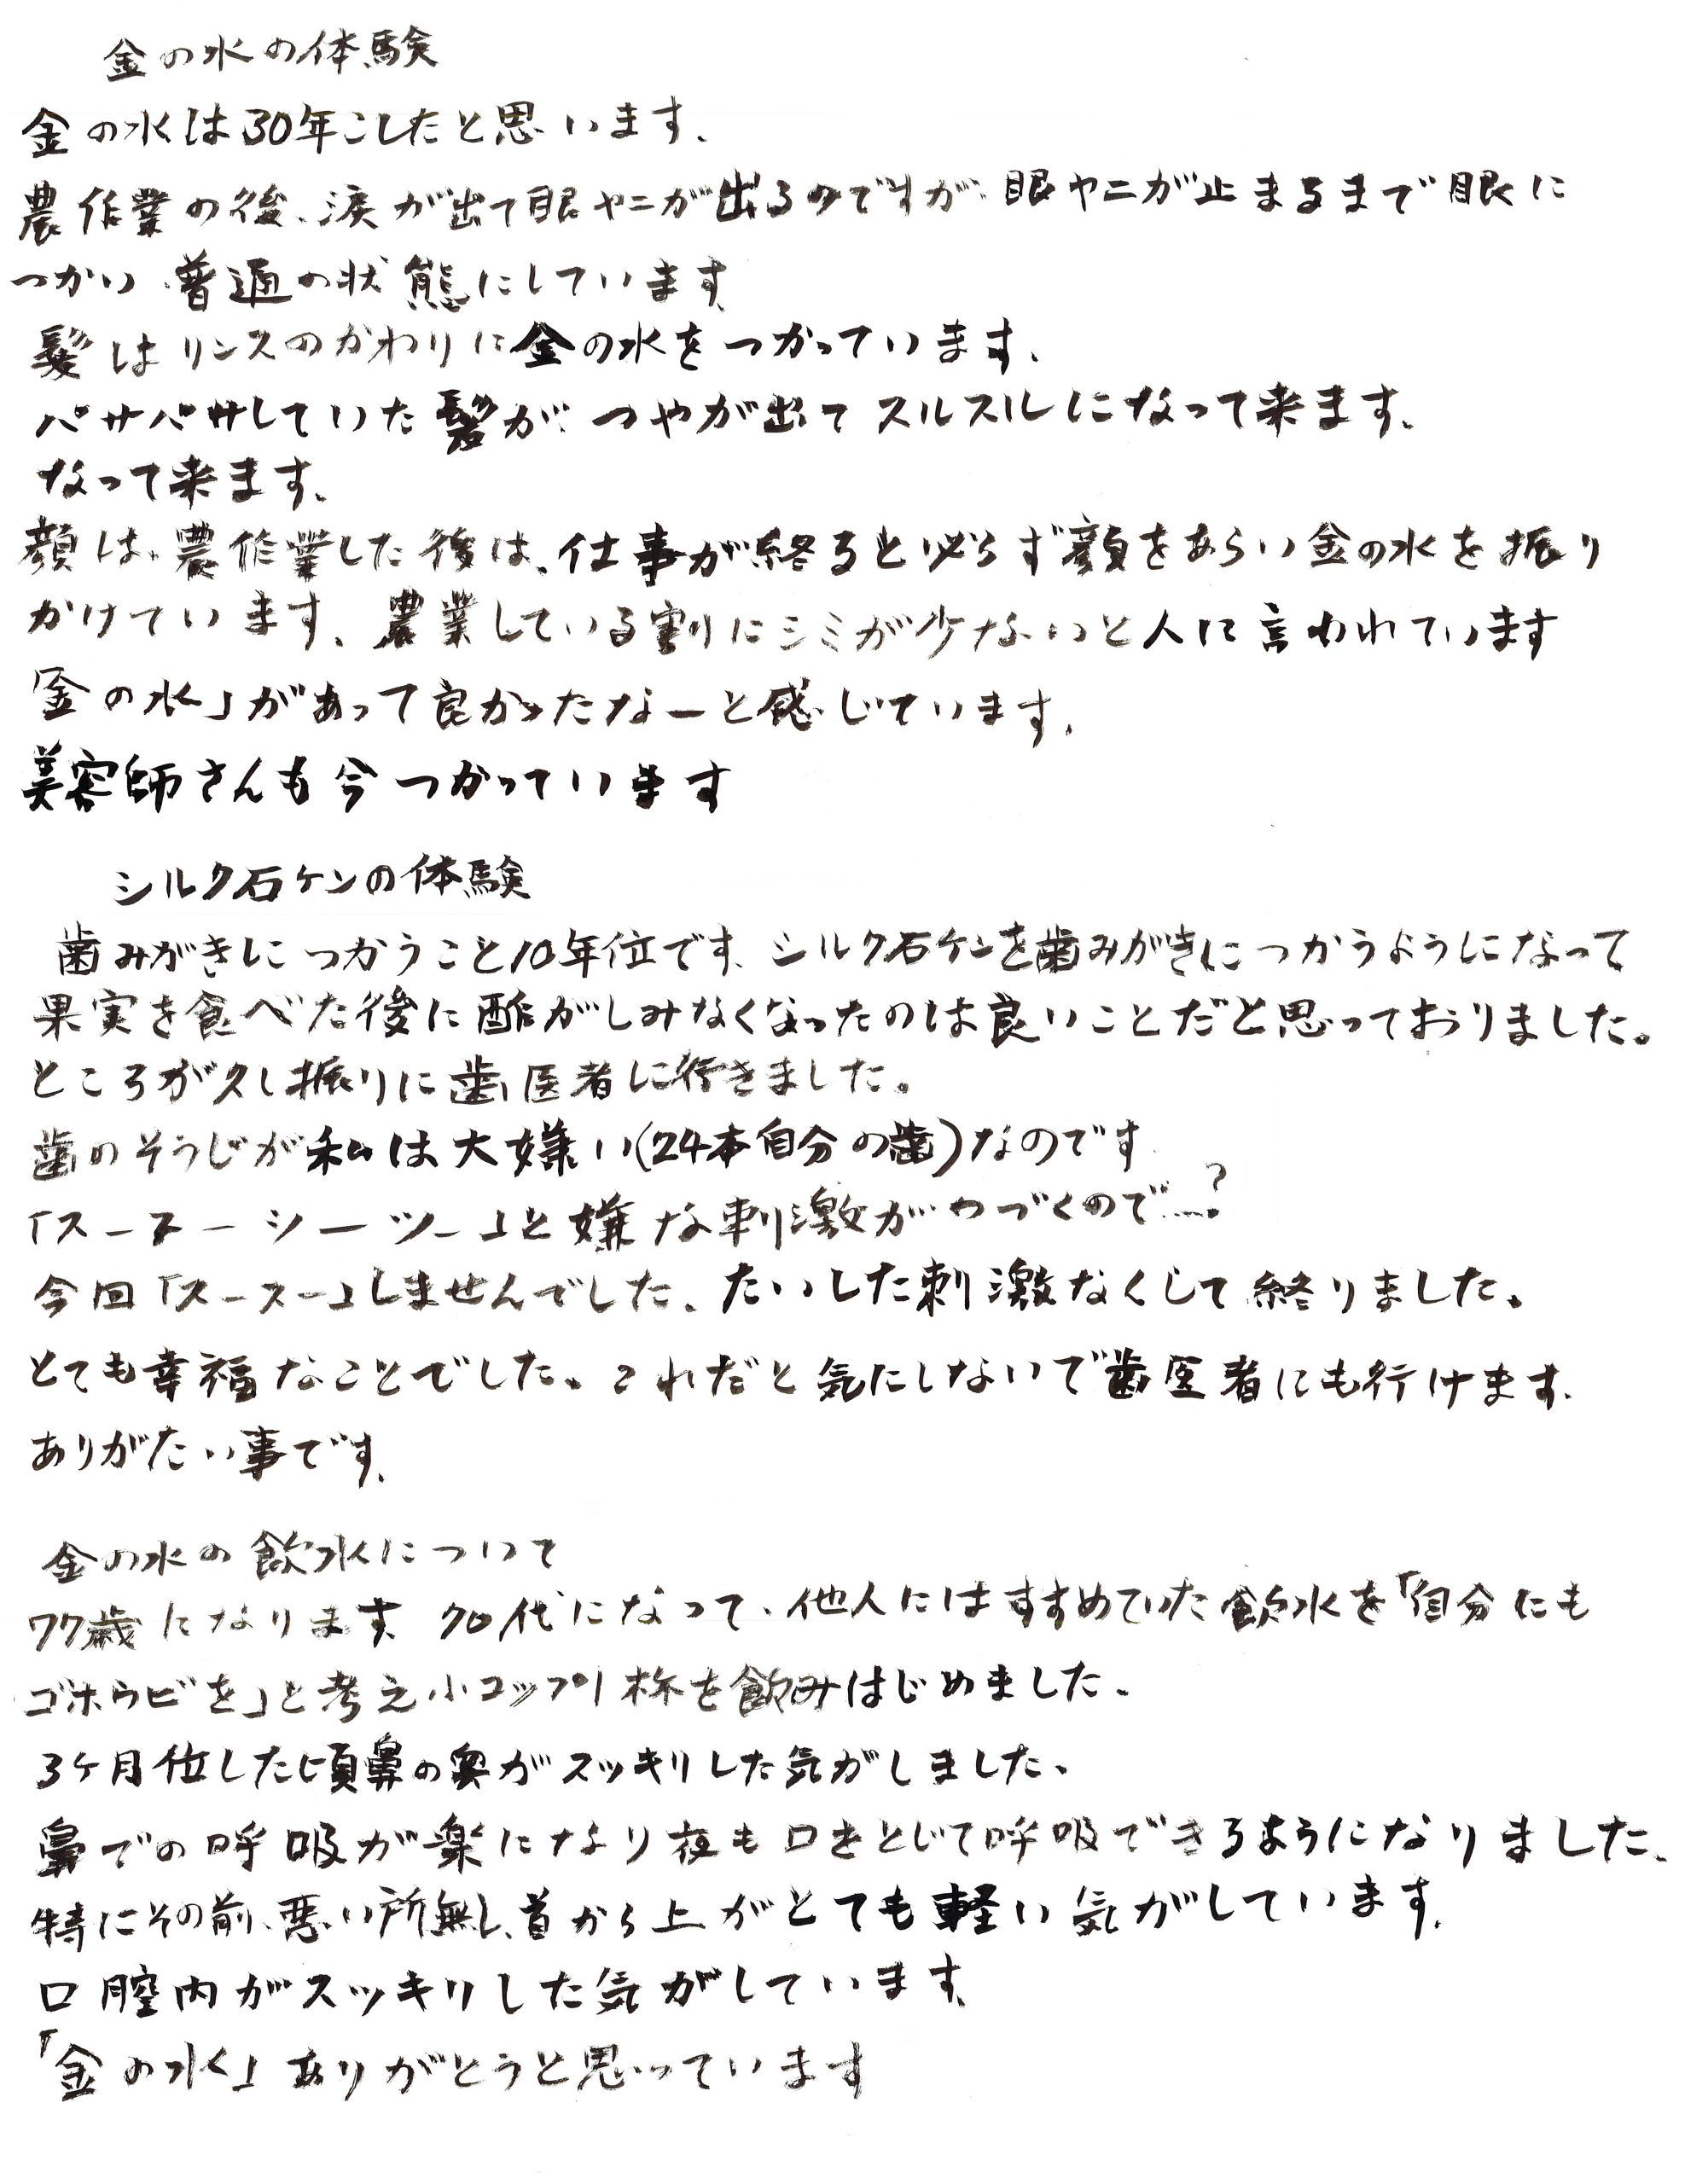 金の水の体験
金の水は30年こしたと思います、
農作業の後、涙が出て眼ヤニが出るのですが、眼ヤニが止まるまで眼に
つかい、普通の状態にしています
髪はリンスのかわりに金の水をつかっています、
パサパサしていた髪が、つやが出てスルスルになって来ます、
なって来ます、
顔は、農作業した後は、仕事が終ると必らず顔をあらい金の水を振り
かけています、農業している割にシミが少ないと人に言われています
「金の水」があって良かったなーと感じています、
美容師さんも今つかっています
シルク石ケンの体験
歯みがきにつかうこと10年位です、シルク石ケンを歯みがきにつかうようになって
果実を食べた後に酢がしみなくなったのは良いことだと思っておりました。
ところが久し振りに歯医者に行きました。
歯のそうじが私は大嫌い(24本自分の歯)なのです
「スースーシーツー」と嫌な刺激がつづくので…?
今回「スースー」しませんでした、たいした刺激なくして終りました。
とても幸福なことでした。これだと気にしないで歯医者にも行けます、
ありがたい事です、
金の水の飲水について
77歳になります、70代になって、他人にはすすめていた飲水を「自分にも
ゴホウビを」と考え小コップ1杯を飲みはじめました、
3ケ月位した頃鼻の奥がスッキリした気がしました、
鼻での呼吸が楽になり夜も口をとじて呼吸できるようになりました、
特にその前、悪い所無し、首から上がとても軽い気がしています、
口腔内がスッキリした気がしています、
「金の水」ありがとうと思っています